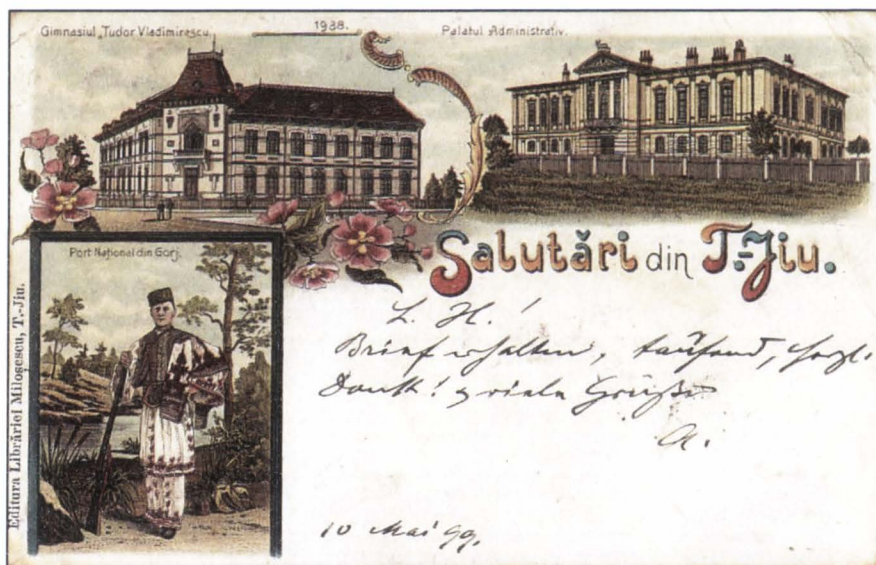 Gimnasiul „Tudor Vladimirescu.
1938.
Palatul Administrativ.
Port Național din Gorj.
Salutări din T.-Jiu.
Editura Librăriei Milosescu, T.-Jiu.
L. H.!
Brief erhalten, tausend, herzl.
Dank! & viele Grüße
A.
10 Mai 99.